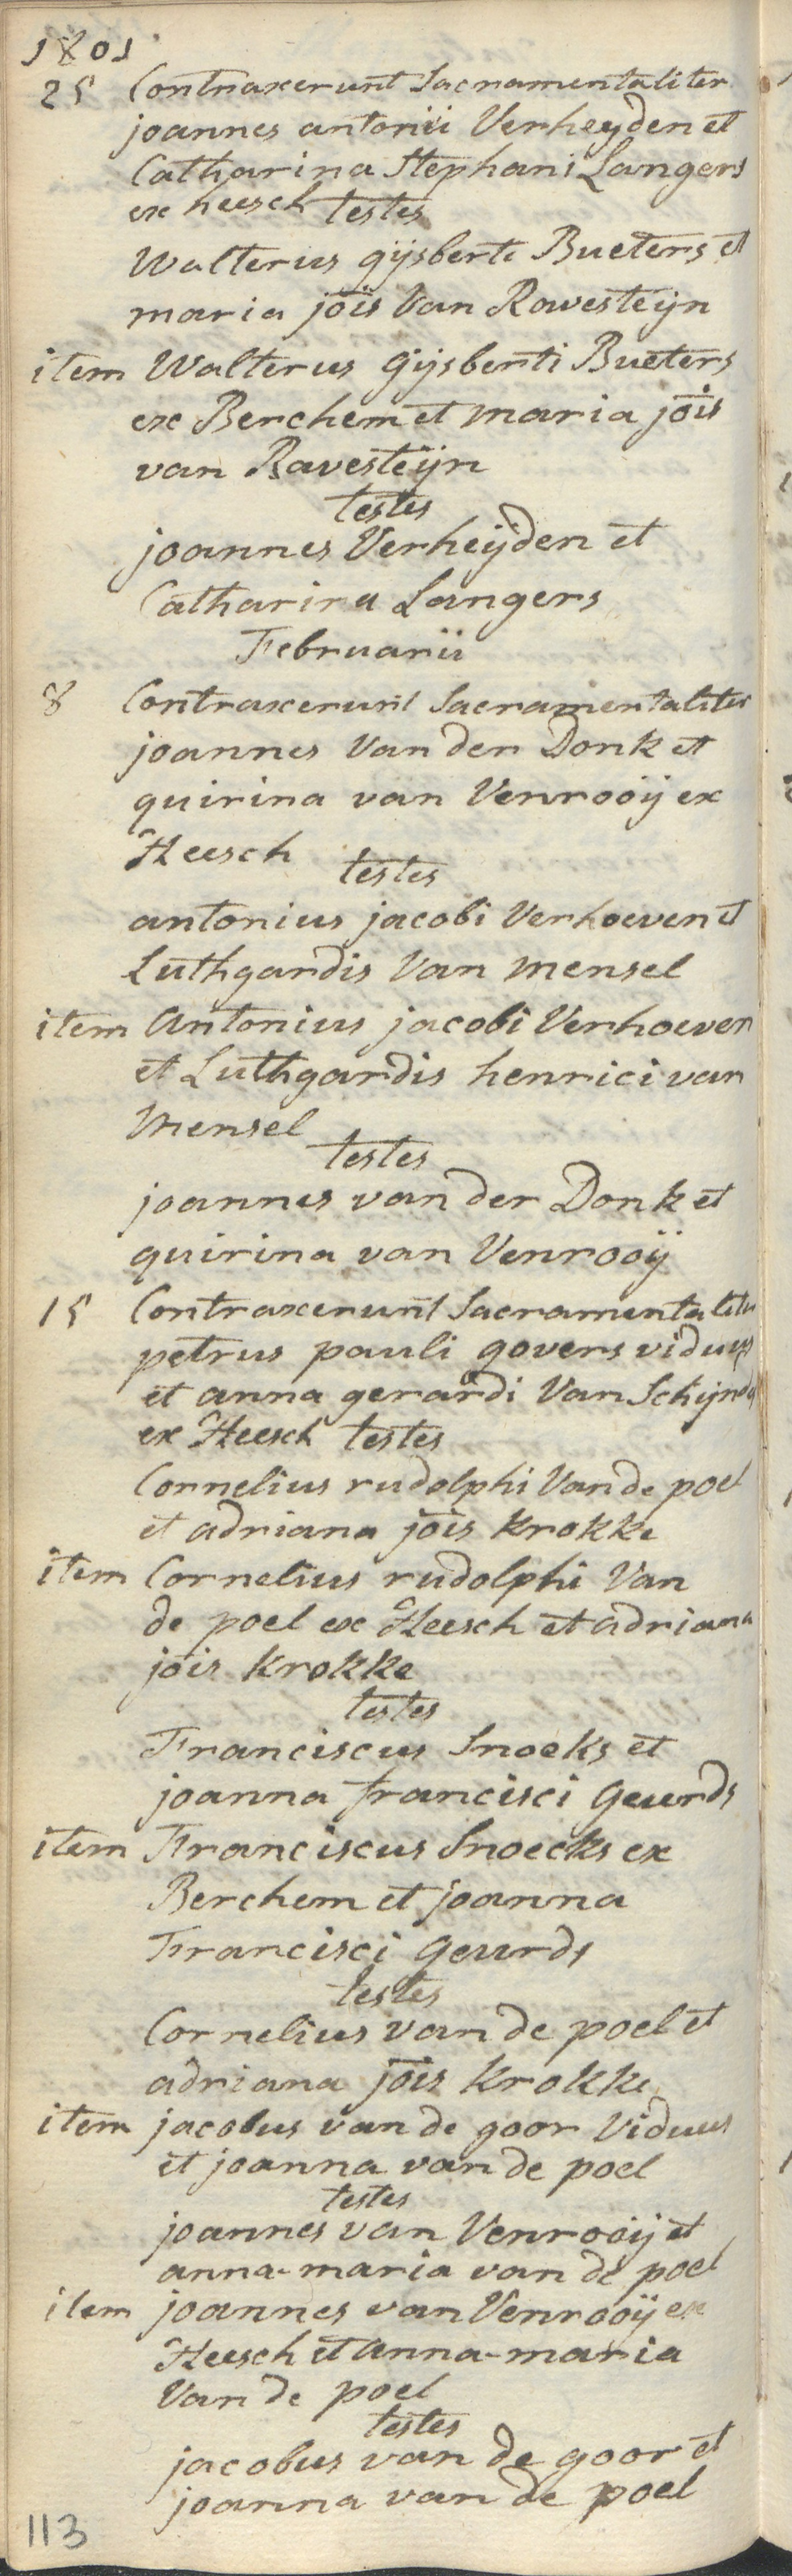 1801
25 Contraxerunt Sacramentaliter
joannes antonii Verheyden et
Catharina Stephani Langers
ex heesch testes
Walterus gijsberti Bueters et
maria jöis Van Ravesteijn
item Walterus Gijsberti Bueters
ex Berchem et maria jöis
van Ravesteijn
testes
joannes Verheijden et
Catharina Langers
Februarii
8 Contraxerunt Sacramentaliter
joannes Van den Donk et
quirina van Venrooij ex
Heesch
testes
antonius jacobi Verhoeven et
Luthgardis Van mensel
item Antonius jacobi Verhoeven
et Luthgardis henrici van
Mensel
testes
joannes van der Donk et
quirina van Venrooij
15 Contraxerunt Sacramentaliter
petrus pauli govers viduus
et anna gerardi Van Schijndel
ex Heesch testes
Cornelius rudolphi Van de poel
et adriana jöis Krokke
item Cornelius rudolphi Van
de poel ex Heesch et adriana
jöis Krokke
testes
Franciscus Snoeks et
joanna francisci Geurds
item Franciscus Snoecks ex
Berchem et joanna
Francisci Geurds
testes
Cornelius van de poel et
adriana jöis Krokke
item jacobus van de goor Viduus
et joanna van de poel
testes
joannes van Venrooij et
anna-maria van de poel
item joannes van Venrooij ex
Heesch et Anna-maria
Van de poel
testes
jacobus van de goor et
joanna van de poel
113